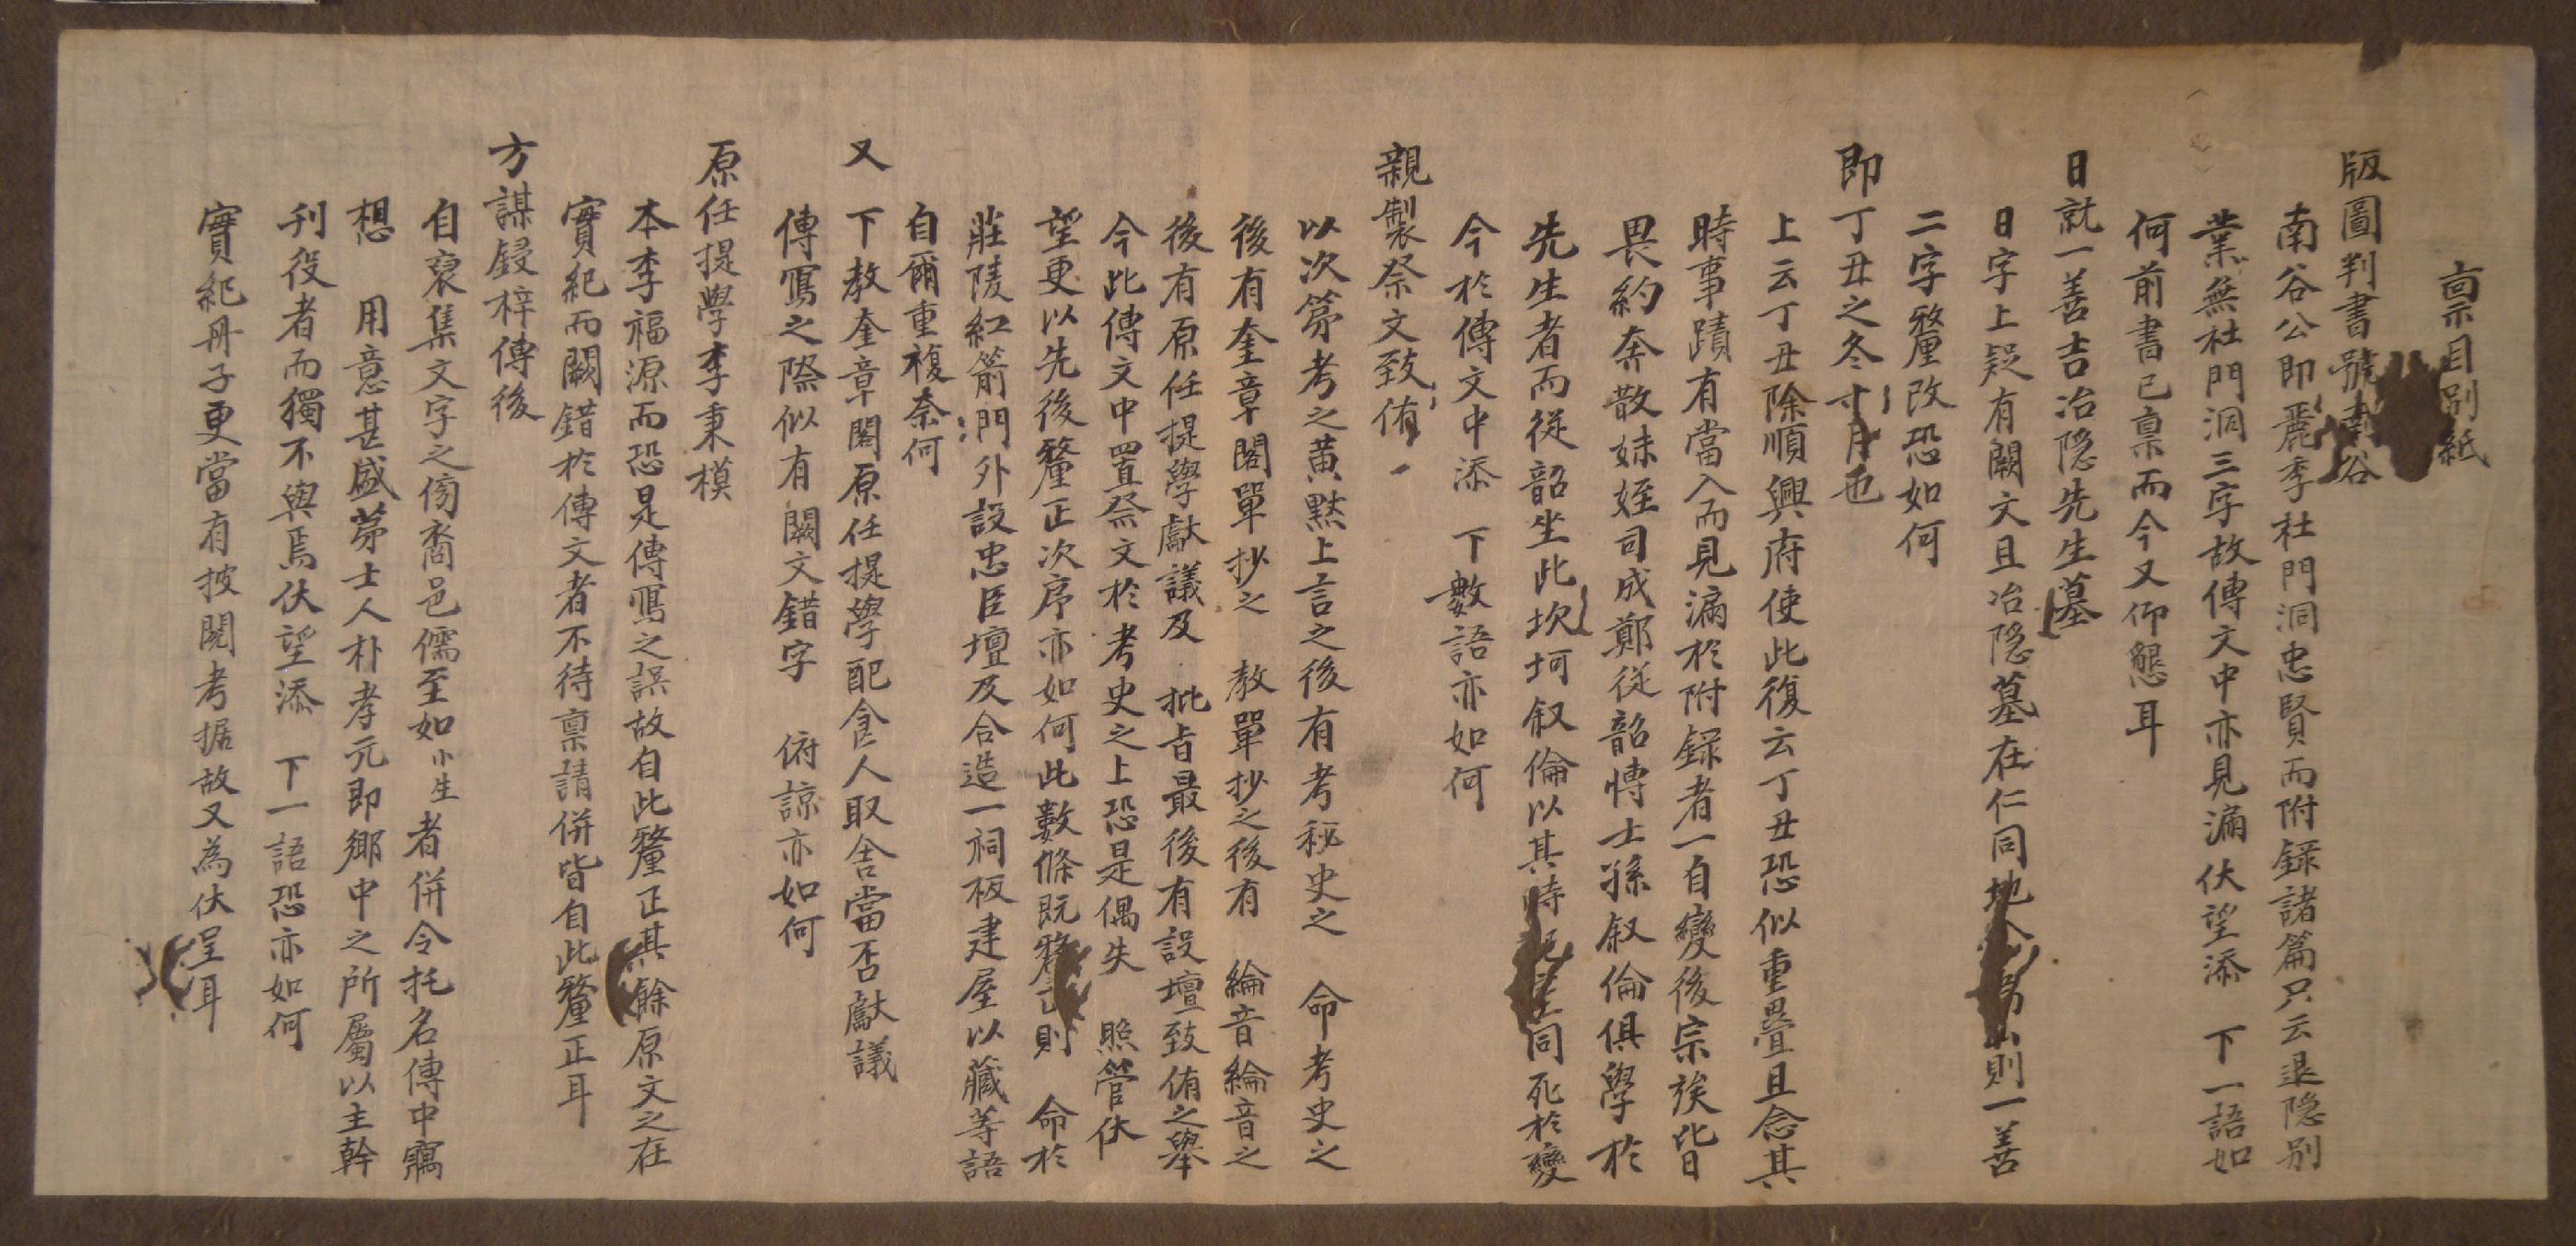 稟目別紙
版圖判書號南谷
南谷公即麗季杜門洞忠賢而附錄諸篇只云退隱別
業無杜門洞三字故傳文中亦見漏伏望添 下一語如
何前書已稟而今又仰懇耳
日就一善吉冶隱先生墓
日字上疑有闕文且冶隱墓在仁同地今 則一善
二字釐改恐如何
即丁丑之冬十月也
上云丁丑除順興府使此復云丁丑恐似重疊且念其
時事蹟有當入而見漏於附錄者一自變後宗族皆
畏約奔散妹姪司成鄭從韶博士孫叙倫俱學於
先生者而從韶坐此坎坷叙倫以其時 同死於變
今於傳文中添 下數語亦如何
親製祭文致侑
以次第考之黃默上言之後有考秘史之 命考史之
後有奎章閣單抄之 敎單抄之後有 綸音綸音之
後有原任提學獻議及 批旨最後有設壇致侑之舉
今此傳文中置祭文於考史之上恐是偶失 照管伏
望更以先後釐正次序亦如何此數條旣釐正則 命於
莊陵紅箭門外設忠臣壇及合造一祠板建屋以藏等語
自爾重複奈何
又 下敎奎章閣原任提學配食人取舍當否獻議
傳寫之際似有闕文錯字 俯諒亦如何
原任提學李秉模
本李福源而恐是傳寫之誤故自此釐正其餘原文之在
實紀而闕錯於傳文者不待稟請併皆自此釐正耳
方謀鋟梓傳後
自裒集文字之傍裔邑儒至如小生者併令托名傳中竊
想 用意甚盛第士人朴孝元即鄉中之所屬以主幹
刊役者而獨不與焉伏望添 下一語恐亦如何
實紀冊子更當有披閱考据故又為伏呈耳